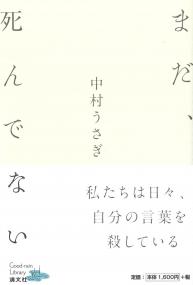 まだ、
死んでない
中村うさぎ
私たちは日々、
自分の言葉を
殺している
Good-rain
Library
満文社
定価:本体1,600円+税